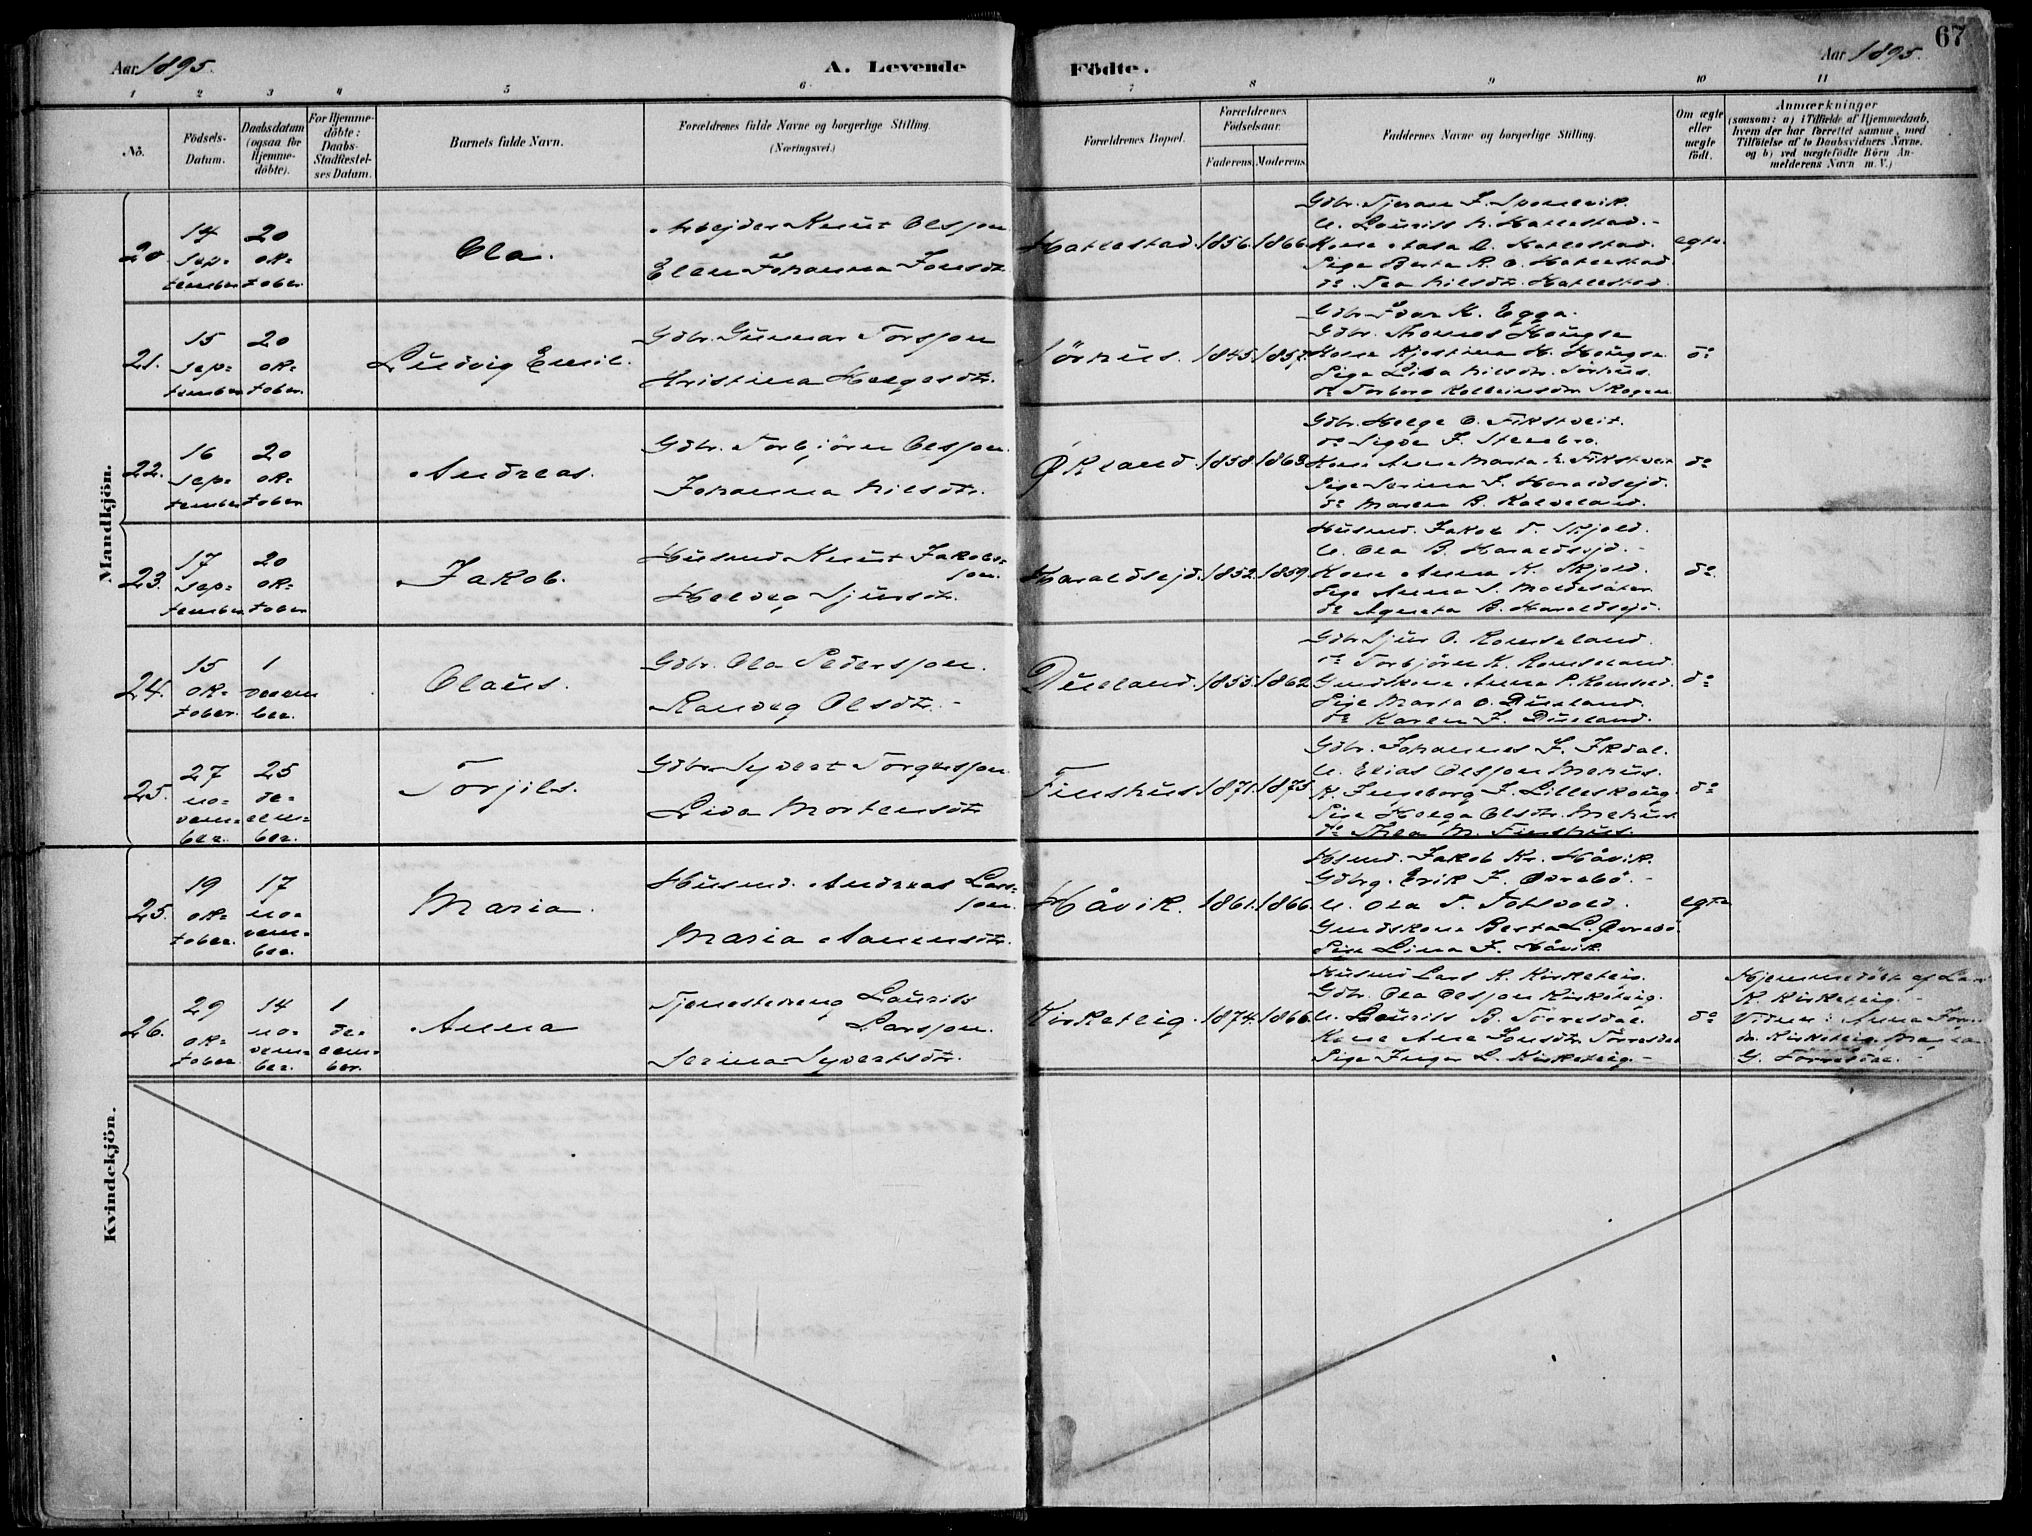 67
Aar 1895. A. Levende Födte. Aar 1895.
1 2 3 4 5 6 7 8 9 10 11
No. Födsels-Datum. Daabsdatum (ogsaa for Hjemme-döbte). For Hjemme-döbte: Daabs-Stadfæstel-ses Datum. Barnets fulde Navn. Forældrenes fulde Navne og borgerlige Stilling. (Næringsvei.) Forældrenes Bopæl. Forældrenes Födselsaar. Faderens. Moderens. Faddernes Navne og borgerlige Stilling. Om ægte eller uægte födt. Anmærkninger (saasom: a) i Tilfælde af Hjemmedaab, hvem der har forrettet samme, med Tilföielse af to Daabsvidners Navne, og b) ved uægtefödte Börn An-melderens Navn m. V.)
Mandkjön.
20 14 sep-tember 20 ok-tober Ola. Arbejder Knut Olsson
Elen Johanna Jonsdtr. Hatlestad. 1856. 1866.
U. Laurits N. Hatlestad.
Kone Aasa O. Hatlestad. egte.
Pige Berta K. O. Hatlestad.
do. Tea Nilsdtr. Hatlestad.
21. 15 sep-tember 20 ok-tober. Ludvig Emil. Gdbr. Gunnar Torsson
Kristina Helgesdtr. Törhus. 1845. 1857.
Gdbr. Ivar K. Egga.
Gdbr. Tomas Haugse
Kone Kjestina H. Haugse. do
Pige Lisa Nilsdtr. Törhus.
do Torborg Kolbeinsdtr. Skogen
22. 16 sep-tember 20 ok-tober Andreas. Gdbr. Torbjörn Olsson.
Johanna Nilsdtr. Økland. 1858. 1863.
Gdbr. Helge O. Fikstveit.
do Sigve J. Stenebro.
Kone Anna Marta E. Fikstveit do
Pige Serina J. Haraldsejd.
do Maren B. Kalveland.
23. 17 sep-tember 20 ok-tober Jakob. Husmd. Knut Jakobs-son.
Helveg Sjursdtr. Haraldsejd. 1852. 1859.
Husmd. Jakob T. Skjold.
U. Ola B. Haraldsejd.
Kone Anna K. Skjold. do.
Pige Anna S.
do Agneta B. Haraldsejd.
24. 15 ok-tober. 1 novem-ber. Olaus. Gdbr. Ola Pedersson.
Ranveg Olsdtr. Dueland. 1853. 1862.
Gdbr. Sjur O. Ramseland.
do Torbjörn K. Ramseland.
Gmdskone Anna P. do
Pige Marta O. Dueland.
do Karen J. Dueland.
25. 27 no-vem-ber. 25 de-cem-ber. Torjils. Gdbr. Syvert Torgersson.
Lisa Mortensdtr. Finshus 1871. 1873.
Gdbr. Johannes J. Ikdal.
U. Elias Olsson Mehus.
K. Ingeborg J. Lilleskoug. do
Pige Helga Olsdtr. Mehus.
do Thea M. Finshus.
Kvindekjön.
25. 19 ok-tober. 17 no-vem-ber. Maria. Husmd. Andreas Lars-son.
Maria Aanensdtr. Håvik. 1861. 1866.
Hsmd. Jakob Kr. Håvik.
Gdbrg. Erik J. Övrebö.
U. Ola T. egte
Gmdskone Berta L. Övrebö.
Pige Lina J. Håvik.
26. 29 ok-tober. 14 no-vem-ber. 1 de-cem-ber. Anna Tjenestedreng Laurits Larsson.
Serina Syvertsdtr. Kirketeig. 1874. 1866.
Husmd Lars K. Kirketeig.
Gdbr. Ola Olsson Kirketeig.
U. Laurits B. Torresdal. do
Kone Ane Jonsdtr. Torresdal
Pige Inger L. Kirketeig.
Hjemmedöbt af Lars
K. Kirketeig.
Vidner: Anna
Kirketeig
G. Torresdal.